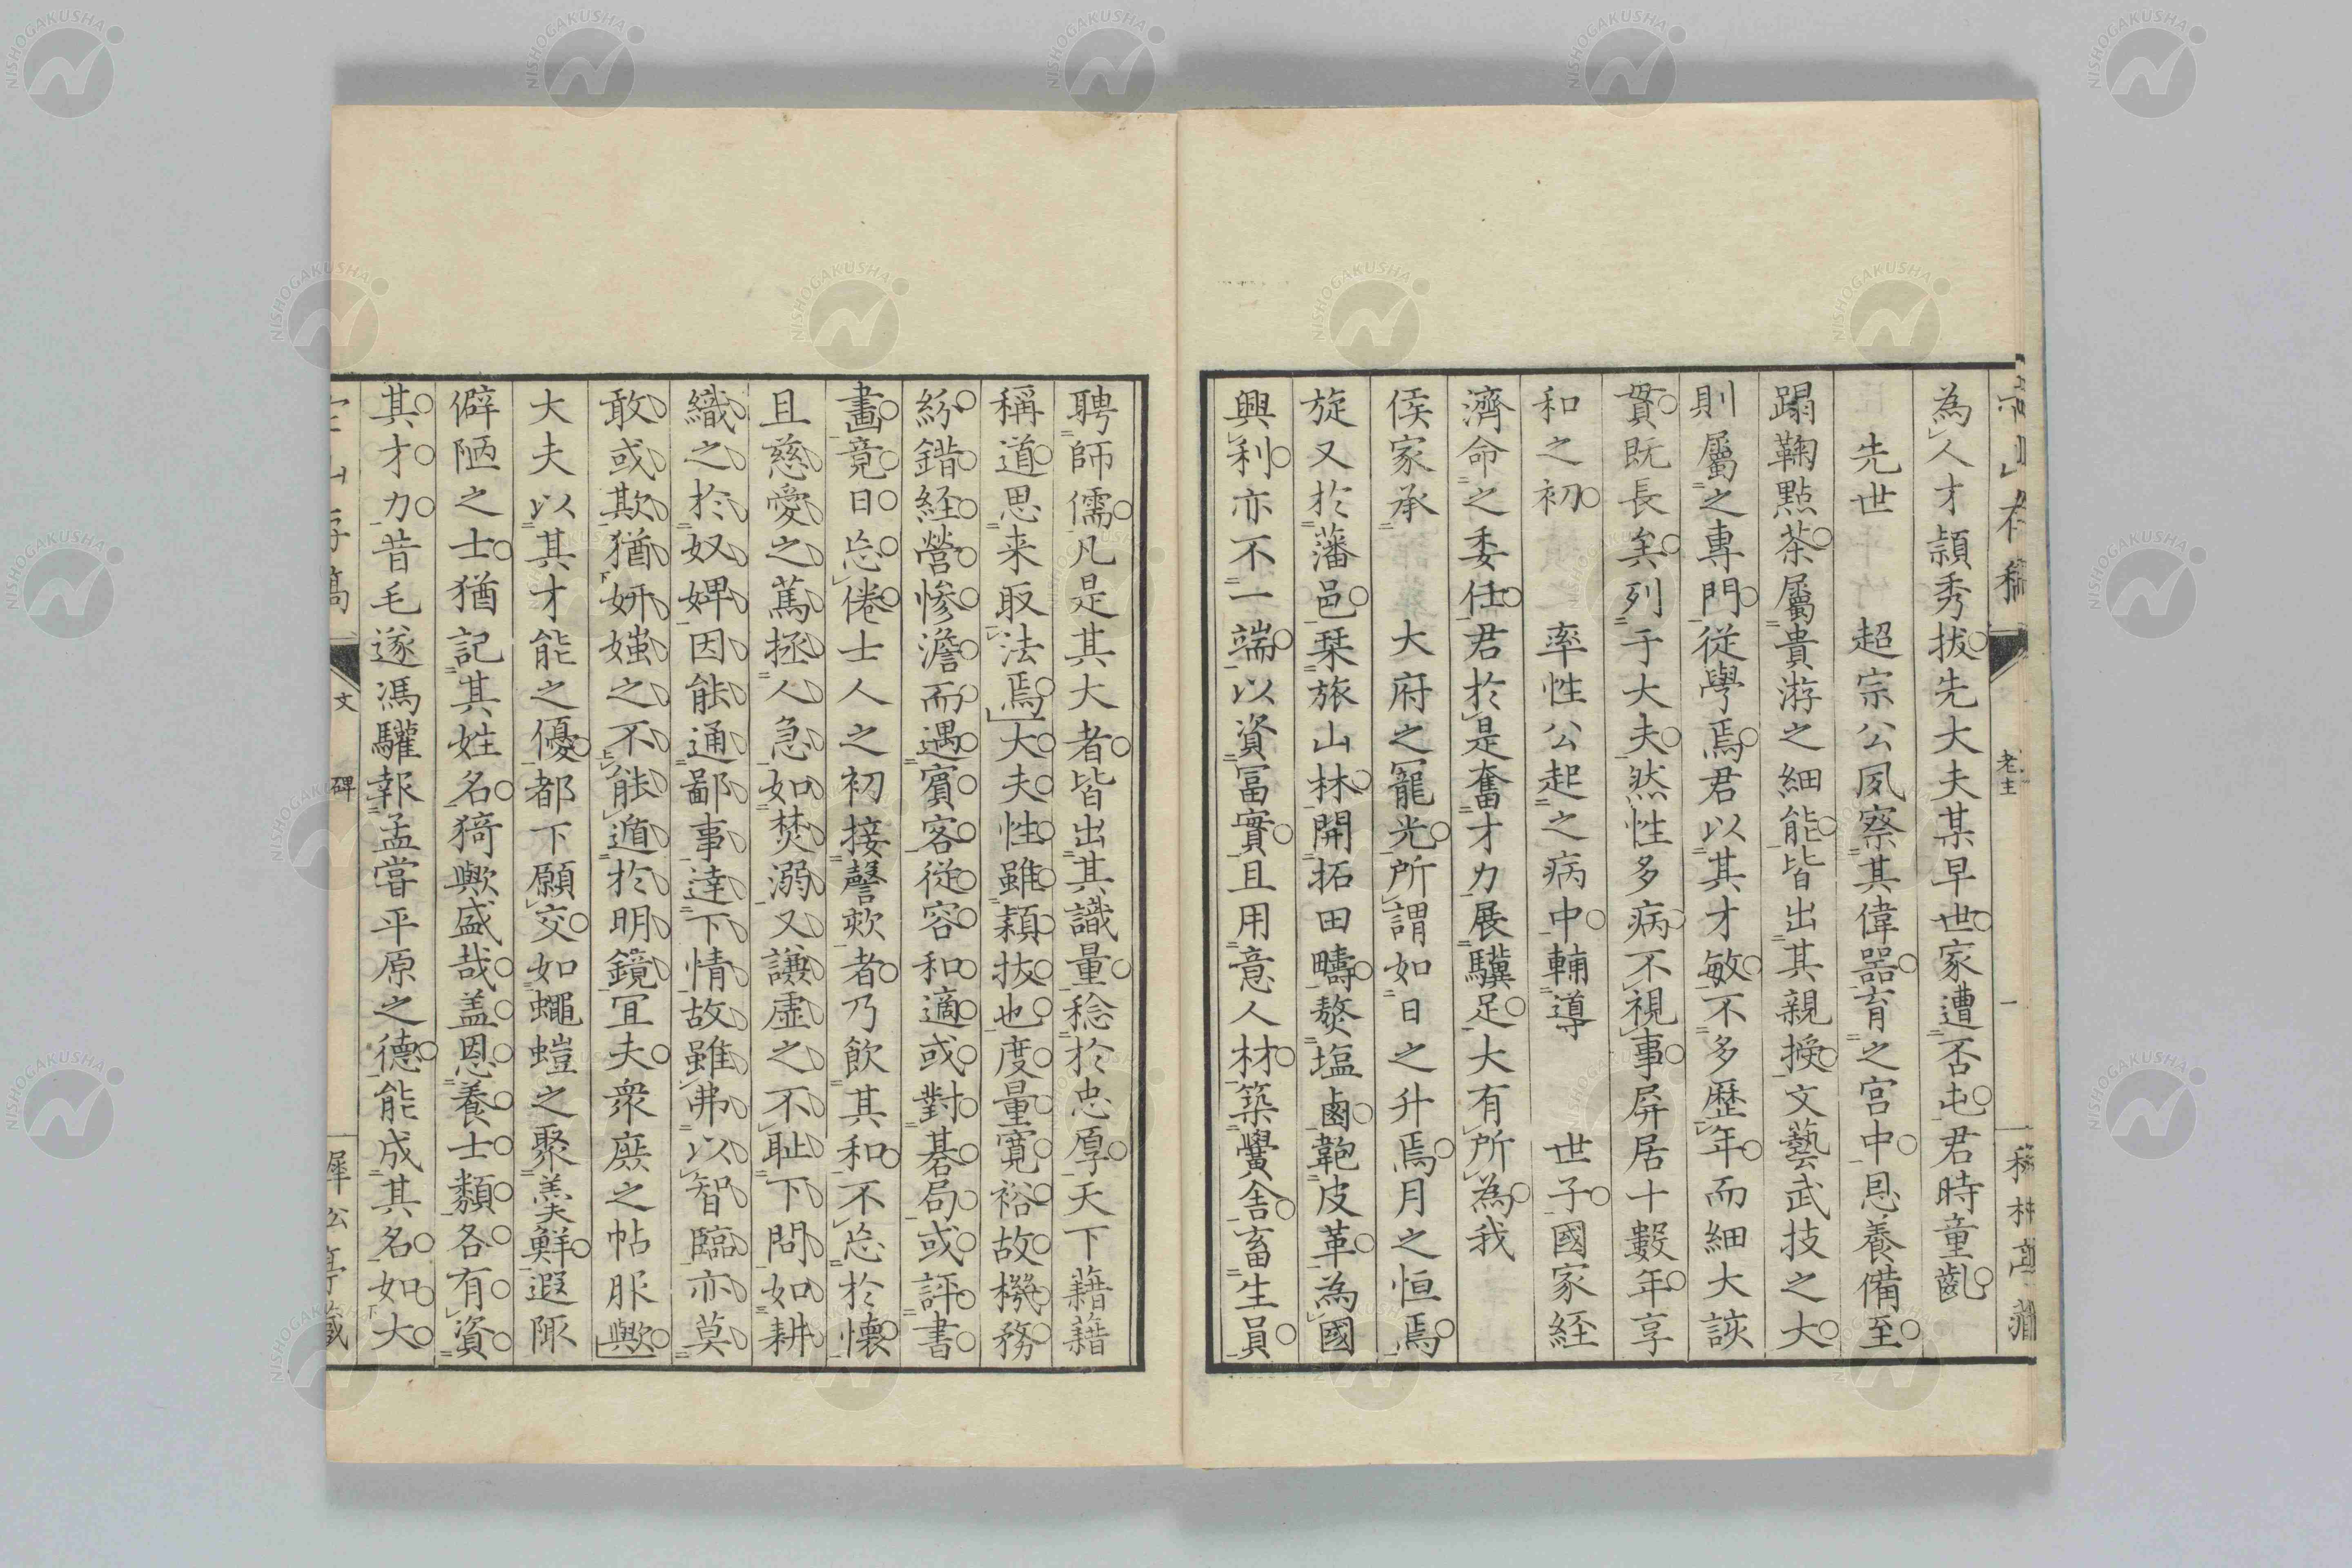 為人才頴秀拔先大夫某早世家遭否屯君時童齓
先世　超宗公夙察其偉器育之宮中恩養備至
蹋鞠點茶屬貴游之細能皆出其親換文藝武技之大
則屬之專門從學焉君以其才敏不多歴年而細大該
貫既長矣列于大夫然性多病不視事屏居十數年享
和之初　率性公起之病中輔導　世子國家経
濟命之委任君於是奮才力展驥足大有所為我
侯家承　大府之寵光所謂如日之升焉月之恒焉
旋又於藩邑栞旅山林開拓田疇熬塩鹵鞄皮革為國
興利亦不一端以資冨實且用意人材築黌舎畜生員
聘師儒凡是其大者皆出其識量稔於忠厚天下藉藉
稱道思来取法焉大夫性雖頴抜也度量寛裕故機務
紛錯経營惨澹而遇賓客従容和適或對碁局或評書
畫竟日忘倦士人之初接謦欬者乃飲其和不忘於懐
且慈愛之篤拯人急如焚溺又謙虚之不耻下問如耕
織之於奴婢因能通鄙事達下情故雖弗以智臨亦莫
敢或欺猶妍媸之不能遁於明鏡冝夫衆庶之帖服歟
大夫以其才能之優都下願交如蠅螘之聚羮鮮遐陬
僻陋之士猶記其姓名猗歟盛哉盖恩養士類各有資
其才力昔毛遂馮驩報孟嘗平原之德能成其名如大
文　碑
NISHOGAKUSHA